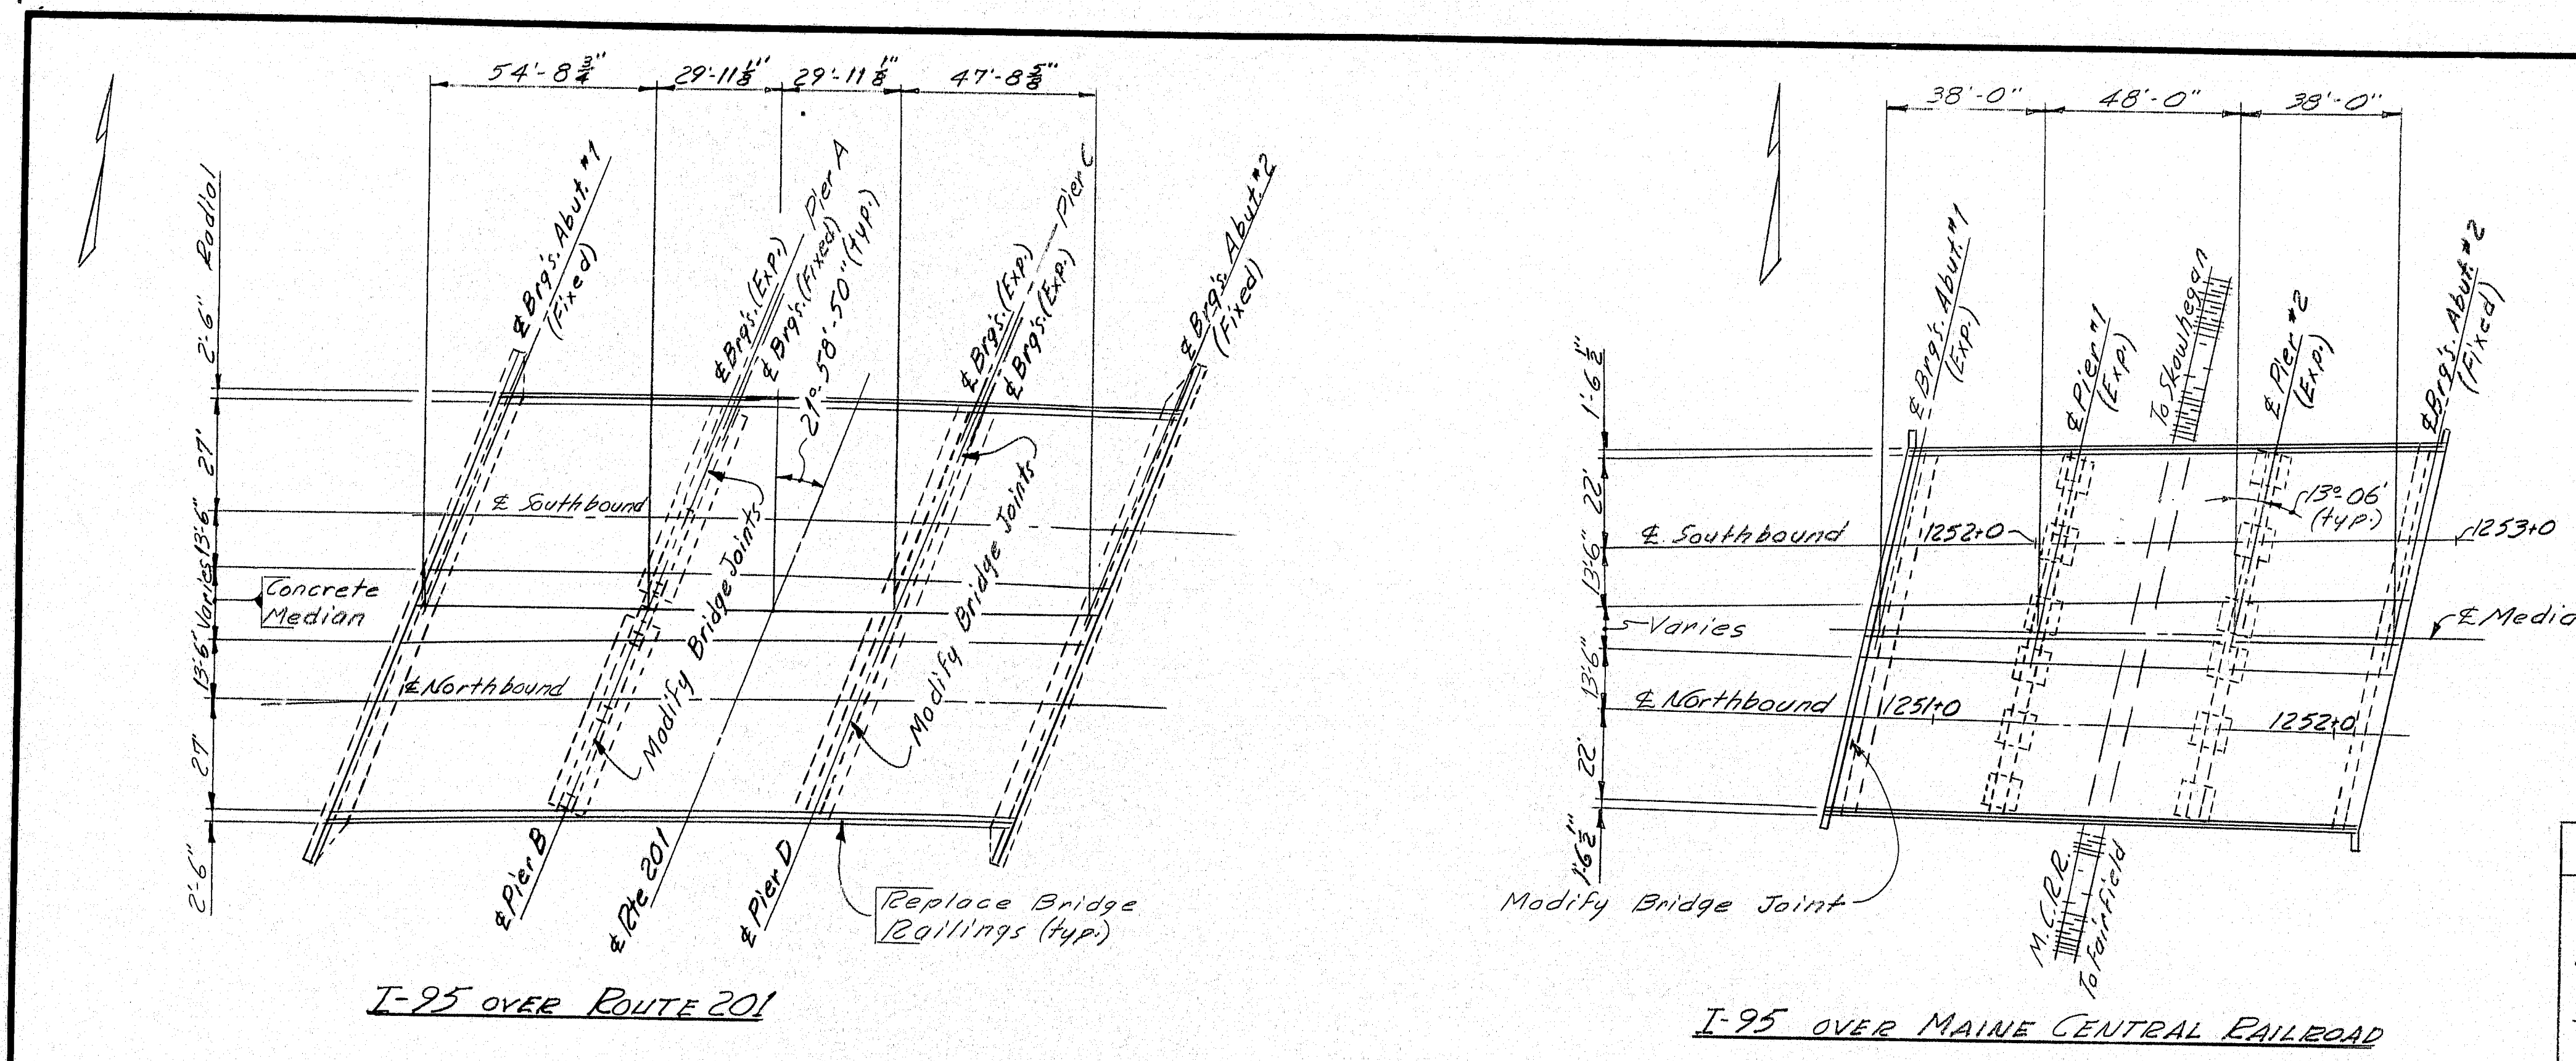 54'-8 3/4"
29'-11 1/8"
29'-11 1/8"
47'-8 5/8"
2'-6" Radial
27'
13'-6"
Varies
13'-6"
27'
2'-6"
℄ Brg's. Abut. #1
(Fixed)
℄ Brg's. (Exp.)
Pier A
℄ Brg's. (Fixed)
21°-58'-50" (typ.)
℄ Brg's. (Exp.)
Pier C
℄ Brg's. (Exp.)
℄ Brg's. Abut. #2
(Fixed)
℄ Southbound
Concrete
Median
℄ Northbound
Modify Bridge Joints
Modify Bridge Joints
℄ Pier B
℄ Rte 201
℄ Pier D
Replace Bridge
Railings (typ.)
I-95 OVER ROUTE 201
38'-0"
48'-0"
38'-0"
1'-6 1/2"
22'
13'-6"
Varies
13'-6"
22'
1'-6 1/2"
℄ Brg's. Abut. #1
(Exp.)
℄ Pier #1
(Exp.)
To Skowhegan
℄ Pier #2
(Exp.)
℄ Brg's. Abut. #2
(Fixed)
13°-06'
(typ.)
℄ Southbound
1252+0
1253+0
℄ Northbound
1251+0
1252+0
Modify Bridge Joint
M.C.R.R.
To Fairfield
I-95 OVER MAINE CENTRAL RAILROAD